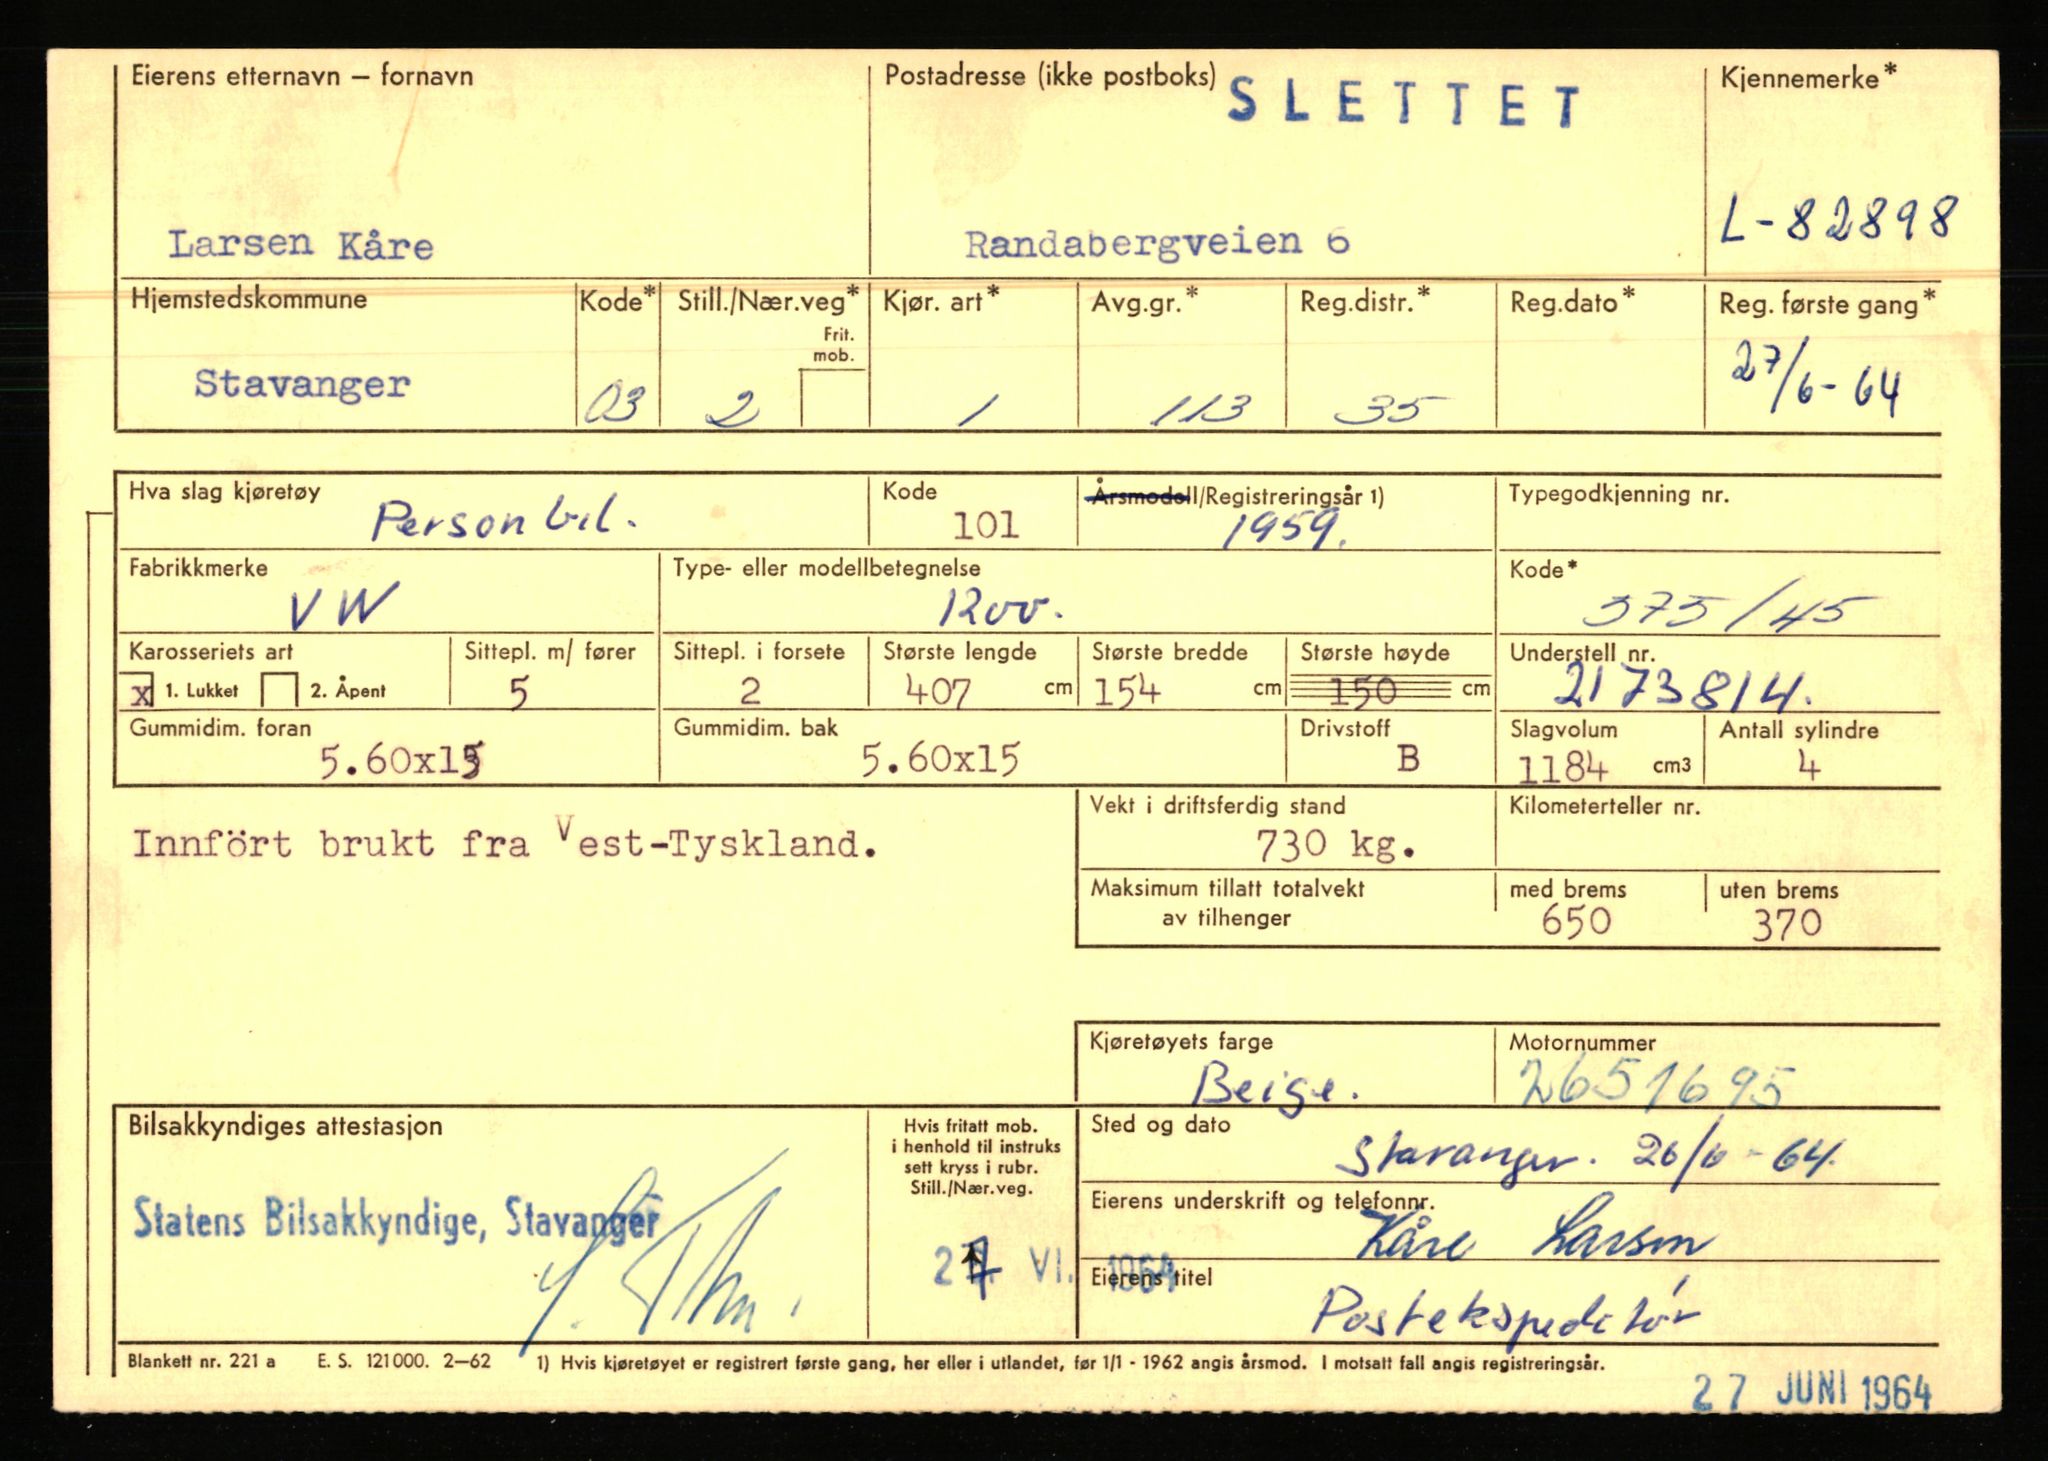 Eierens etternavn – fornavn
Postadresse (ikke postboks)
SLETTET
Kjennemerke*
Larsen Kåre
Randabergveien 6
L-82898
Hjemstedskommune
Kode*
Still./Nær.veg*
Frit. mob.
Kjør. art*
Avg.gr.*
Reg.distr.*
Reg.dato*
Reg. første gang*
Stavanger
03
2
1
113
35
27/6-64
Hva slag kjøretøy
Personbil.
Kode
101
Årsmodell/Registreringsår 1)
1959.
Typegodkjenning nr.
Fabrikkmerke
VW
Type- eller modellbetegnelse
1200.
Kode*
375/45
Karosseriets art
x 1. Lukket 2. Åpent
Sittepl. m/ fører
5
Sittepl. i forsete
2
Største lengde
407 cm
Største bredde
154 cm
Største høyde
150 cm
Understell nr.
2173814.
Gummidim. foran
5.60x15
Gummidim. bak
5.60x15
Drivstoff
B
Slagvolum
1184 cm3
Antall sylindre
4
Innført brukt fra Vest-Tyskland.
Vekt i driftsferdig stand
730 kg.
Kilometerteller nr.
Maksimum tillatt totalvekt
av tilhenger
med brems
650
uten brems
370
Kjøretøyets farge
Beige.
Motornummer
2651695
Bilsakkyndiges attestasjon
Statens Bilsakkyndige, Stavanger
Hvis fritatt mob.
i henhold til instruks
sett kryss i rubr.
Still./Nær.veg.
27 VI. 1964
Sted og dato
Stavanger. 26/6-64.
Eierens underskrift og telefonnr.
Kåre Larsen
Eierens titel
Postekspeditør
Blankett nr. 221 a E. S. 121000. 2–62 1) Hvis kjøretøyet er registrert første gang, her eller i utlandet, før 1/1 - 1962 angis årsmod. I motsatt fall angis registreringsår.
27 JUNI 1964